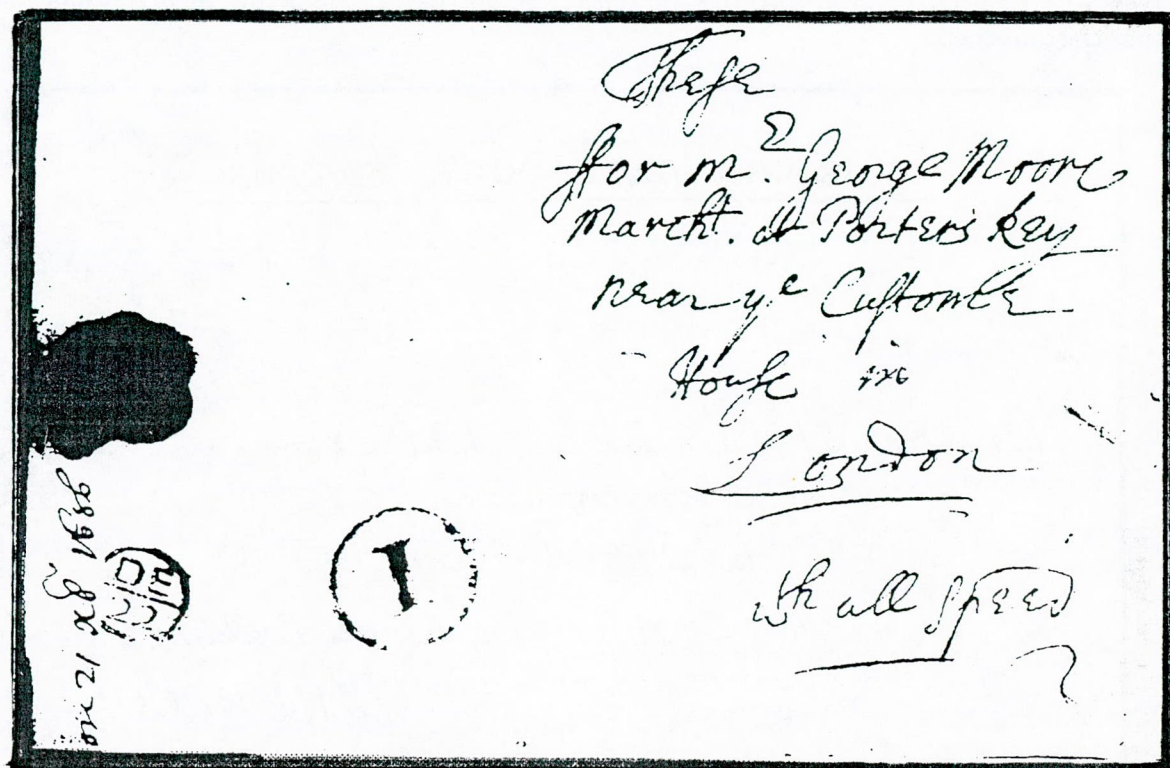 These
ffor mr. George Moore
Marcht. at Porters key
near ye Custome
House in
London
wth all speed
21 x8r 1686
DE
I